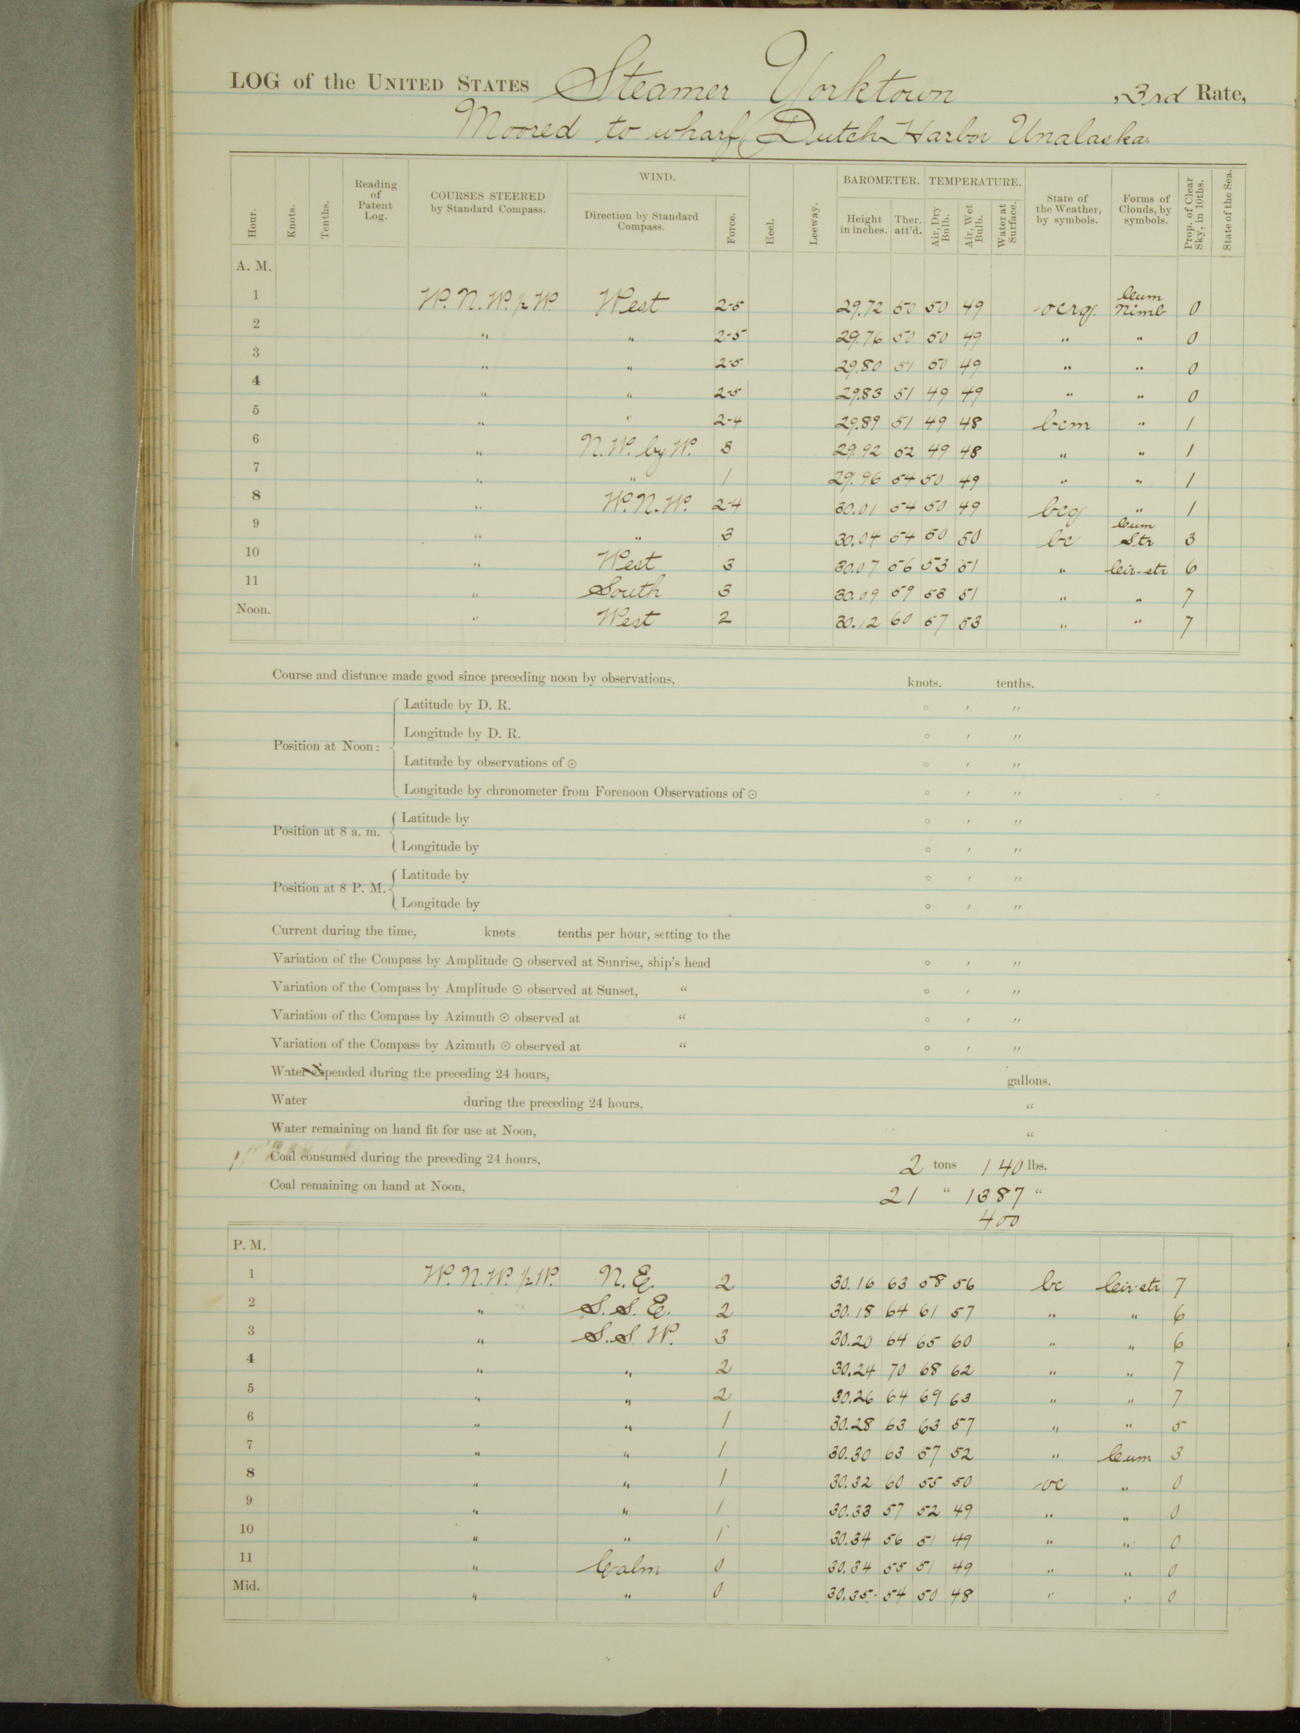 LOG of the UNITED STATES Steamer Yorktown, 3rd Rate,
Moored to wharf Dutch Harbor Unalaska
Hour. Knots. Tenths. Reading of Patent Log. COURSES STEERED by Standard Compass. WIND. Direction by Standard Compass. Force. Heel. Leeway. BAROMETER. Height in inches. Ther. att'd. TEMPERATURE. Air, Dry Bulb. Air, Wet Bulb. Water at Surface. State of the Weather, by symbols. Forms of Clouds, by symbols. Prop. of Clear Sky, in 10ths. State of the Sea.
A. M.
1 W.N.W.½W. West 2-5 29.72 50 50 49 ocrq Cum Nimb 0
2 " " 2-5 29.76 50 50 49 " " 0
3 " " 2-5 29.80 51 50 49 " " 0
4 " " 2-5 29.83 51 49 49 " " 0
5 " " 2-4 29.89 51 49 48 bcm " 1
6 " N.W. by W. 3 29.92 52 49 48 " " 1
7 " " 1 29.96 54 50 49 " " 1
8 " W.N.W. 2-4 30.01 54 50 49 bcq " 1
9 " " 3 30.04 54 50 50 bc Cum Str 3
10 " West 3 30.07 56 53 51 " Cir-str 6
11 " South 3 30.09 59 53 51 " " 7
Noon. " West 2 30.12 60 57 53 " " 7
Course and distance made good since preceding noon by observations, knots. tenths.
Position at Noon: Latitude by D. R. ° ′ ″
Longitude by D. R. ° ′ ″
Latitude by observations of ☉ ° ′ ″
Longitude by chronometer from Forenoon Observations of ☉ ° ′ ″
Position at 8 a. m. Latitude by ° ′ ″
Longitude by ° ′ ″
Position at 8 P. M. Latitude by ° ′ ″
Longitude by ° ′ ″
Current during the time, knots tenths per hour, setting to the
Variation of the Compass by Amplitude ☉ observed at Sunrise, ship's head ° ′ ″
Variation of the Compass by Amplitude ☉ observed at Sunset, " ° ′ ″
Variation of the Compass by Azimuth ☉ observed at " ° ′ ″
Variation of the Compass by Azimuth ☉ observed at " ° ′ ″
Water expended during the preceding 24 hours, gallons.
Water during the preceding 24 hours, "
Water remaining on hand fit for use at Noon, "
Coal consumed during the preceding 24 hours, 2 tons 140 lbs.
Coal remaining on hand at Noon, 21 " 1387 "
400
P. M.
1 W.N.W.½W. N.E. 2 30.16 63 58 56 bc Cir-str 7
2 " S.S.E. 2 30.18 64 61 57 " " 6
3 " S.S.W. 3 30.20 64 65 60 " " 6
4 " " 2 30.24 70 68 62 " " 7
5 " " 2 30.26 64 69 63 " " 7
6 " " 1 30.28 63 63 57 " " 5
7 " " 1 30.30 63 57 52 " Cum 3
8 " " 1 30.32 60 55 50 oc " 0
9 " " 1 30.33 57 52 49 " " 0
10 " " 1 30.34 56 51 49 " " 0
11 " Calm 0 30.34 55 51 49 " " 0
Mid. " " 0 30.35 54 50 48 " " 0